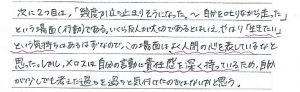 次に2つ目は、「幾度か立ち止まりそうになった。〜自分を叱りながら走った」
という場面(行動)である。いくら友人が大切であるとはいえ、やはり「生きたい」
という気持ちはあるはずなので、この場面はよく人間の心を表しているなと
思った。しかし、メロスは自分の言動に責任感を深く持っているため、自分
が少しでも考えた過ちを過ちと気付けたのではないかと思う。